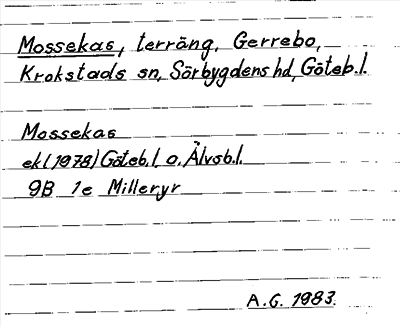 Mossekas, terräng, Gerrebo,
Krokstads sn, Sörbygdens hd, Göteb.l.
Mossekas
ekl (1978) Göteb.l o. Älvsb.l.
9B 1e Milleryr
A.G. 1983.